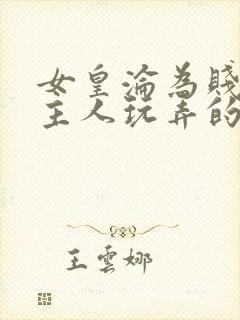 女皇淪為賤
主人玩弄的
王雲娜